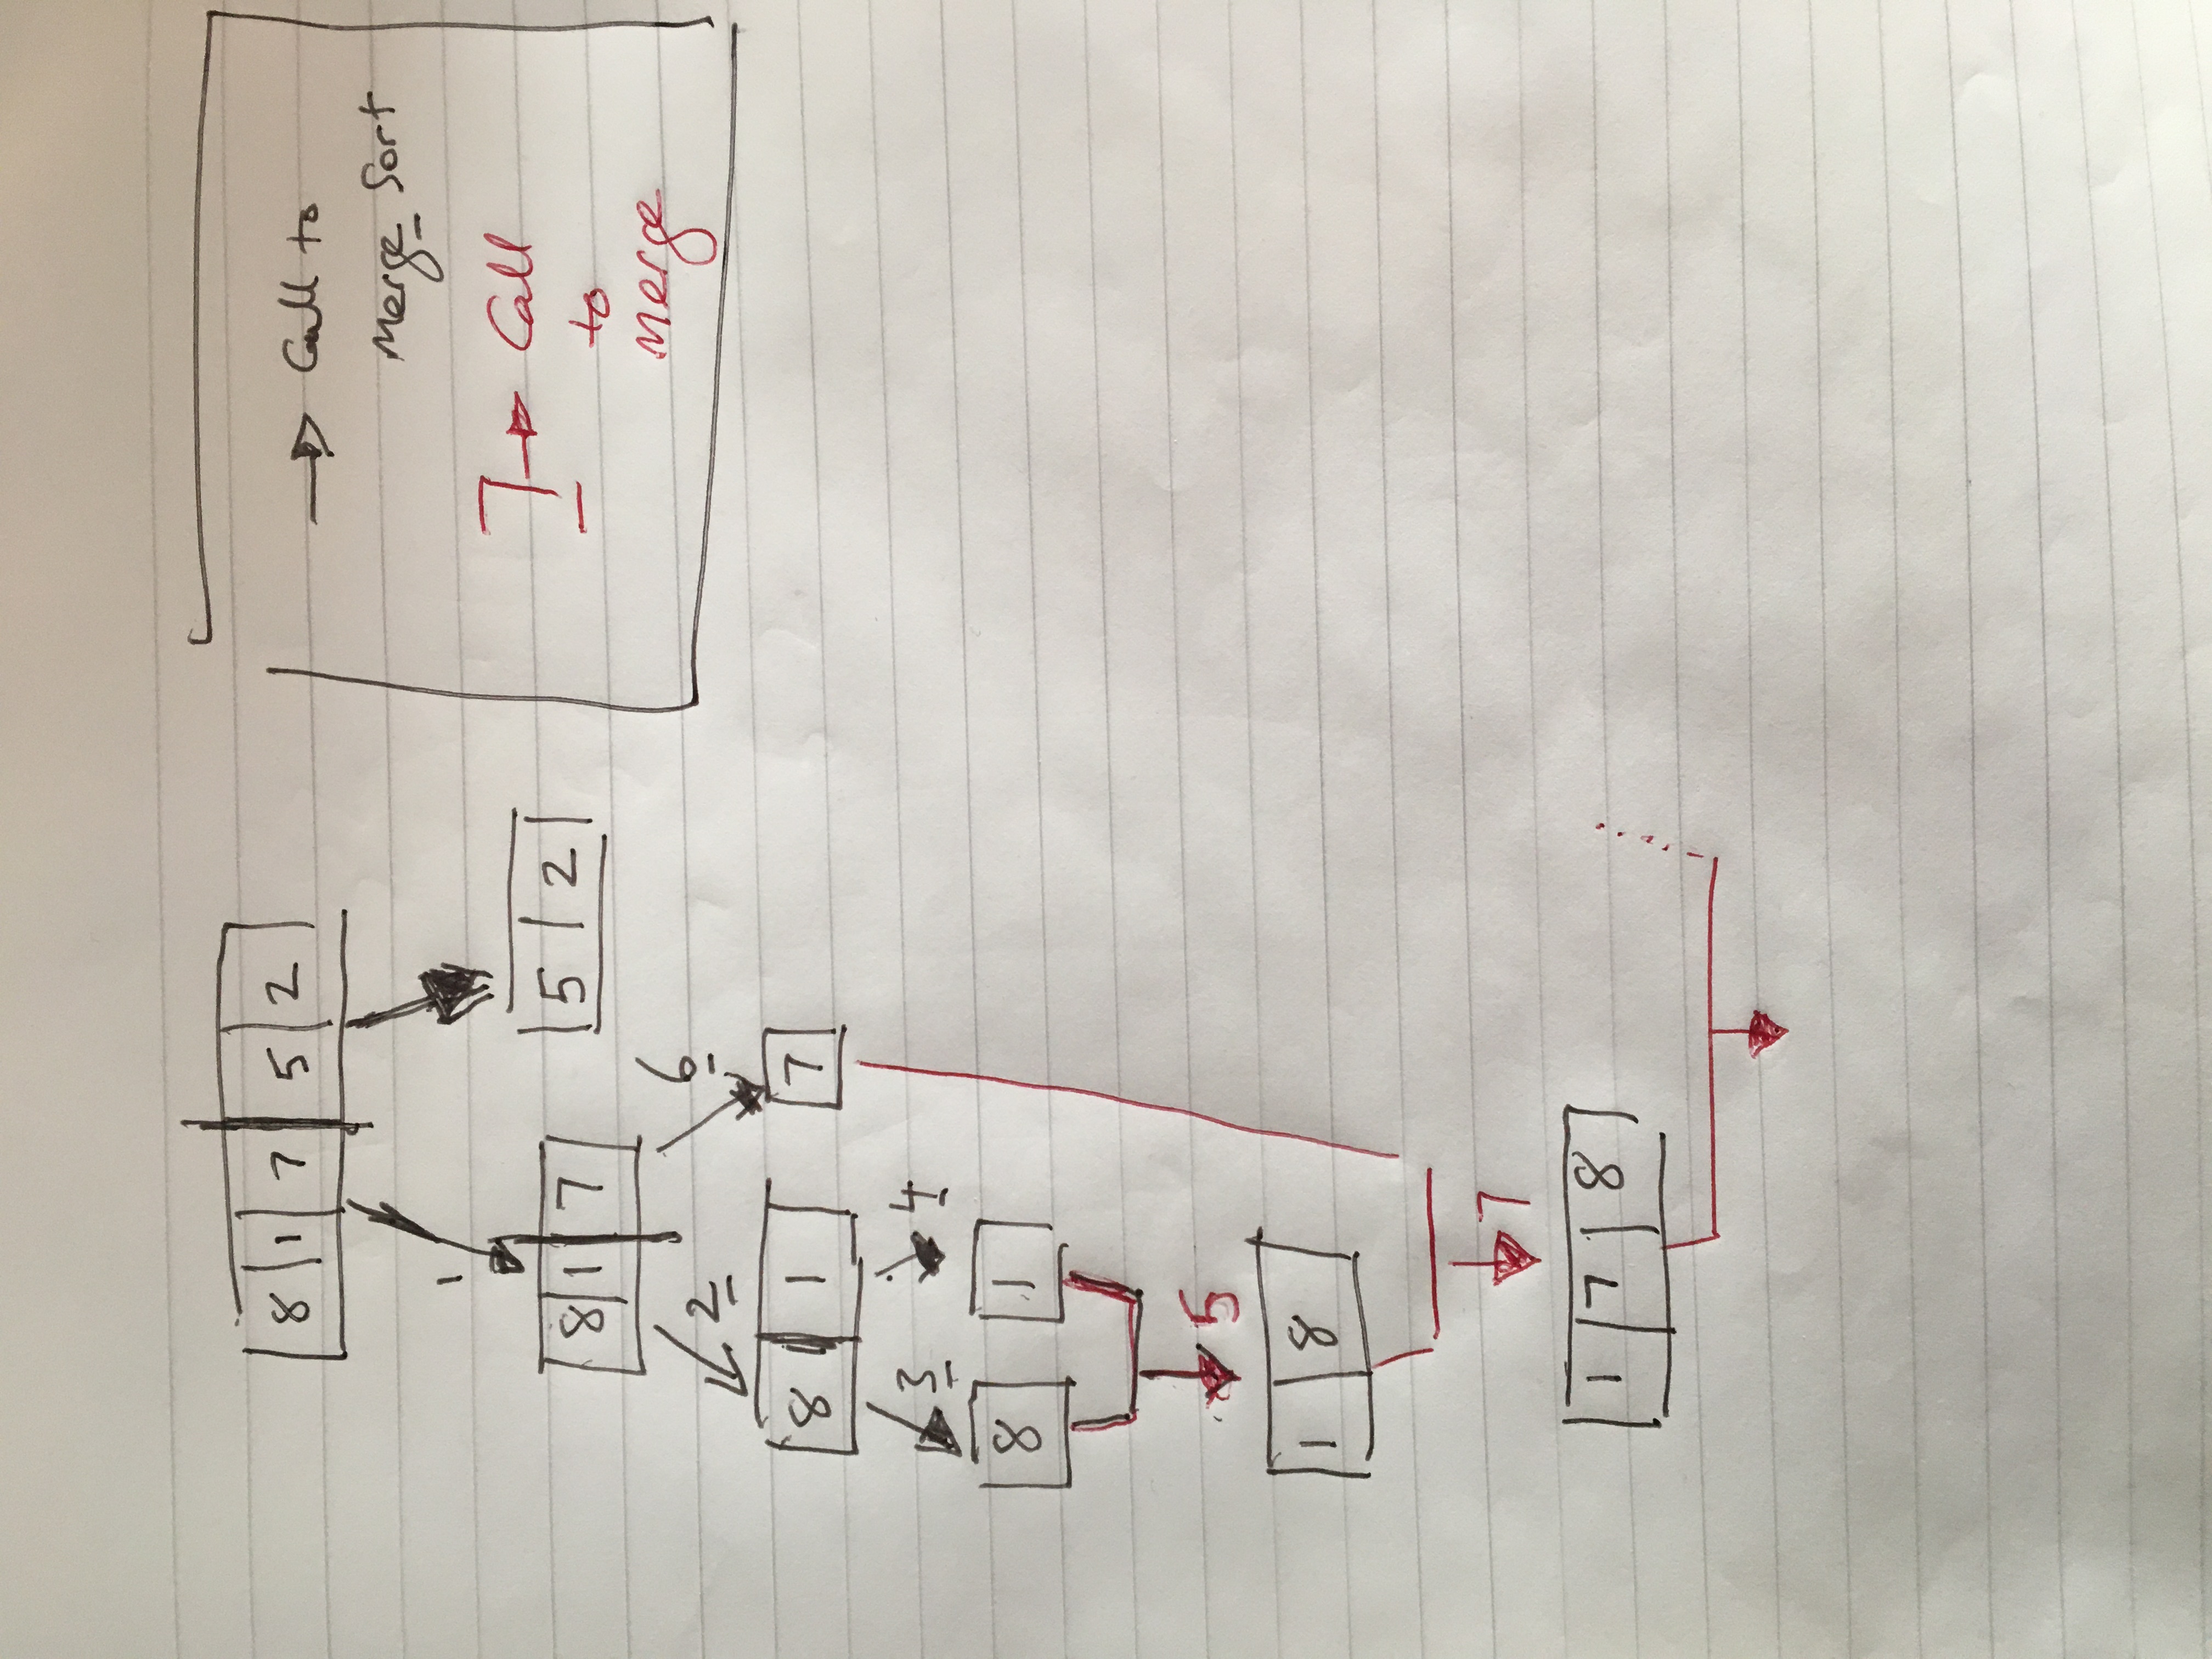 8 1 7 5 2
1
8 1 7
5 2
2
6
8 1
7
3
4
8
1
5
1 8
7
1 7 8
Call to
Merge Sort
Call
to
Merge